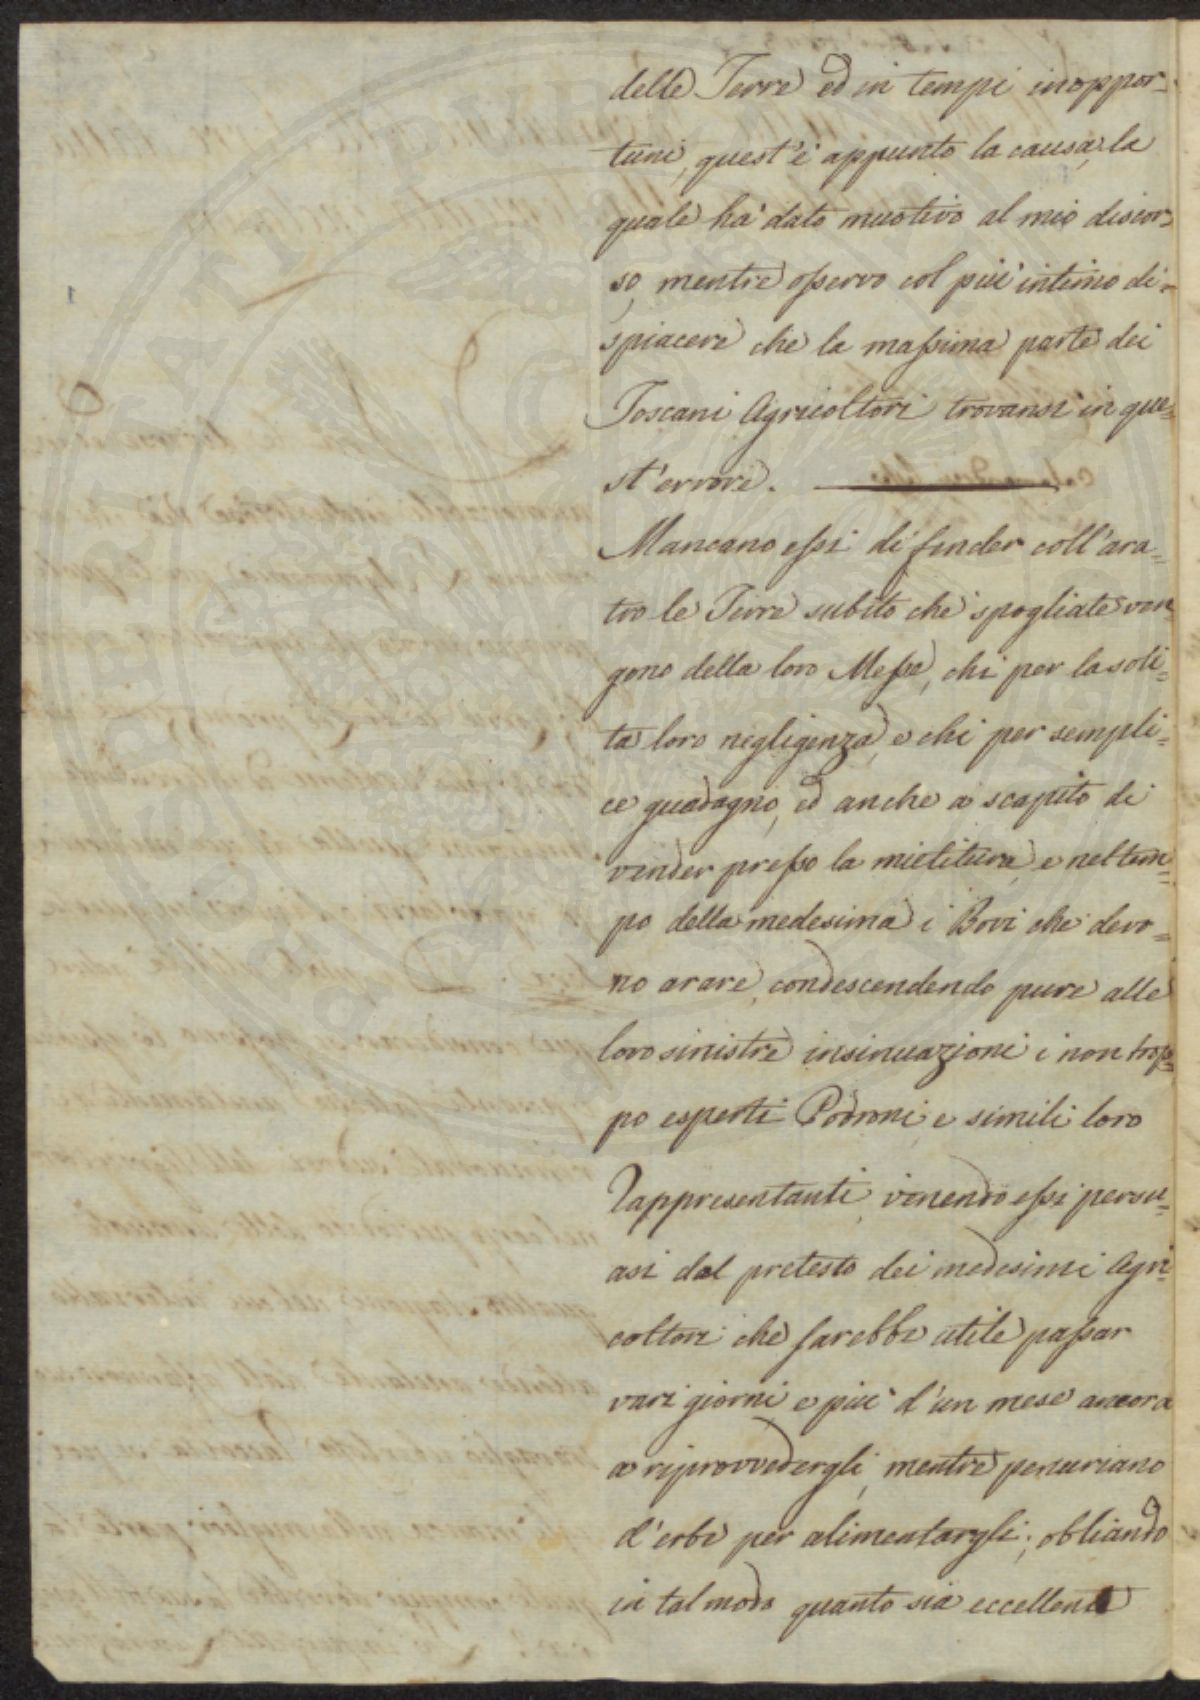 delle Terre ed in tempi inoppor=
tuni, quest'è appunto la causa, la
quale ha' dato muotivo al mio discor=
so, mentre osservo col più intimo di=
spiacere che la massima parte dei
Toscani Agricoltori trovansi in que=
st'errore.
Mancano essi di fender coll'ara=
tro le Terre subito che spogliate ven=
gono della loro Messe, chi per la soli=
ta loro negligenza, e chi per sempli=
ce guadagno, ed anche a scapito di
vender presso la mietitura, e nel tem=
po della medesima i Bovi che devo=
no arare, condescendendo pure alle
loro sinistre insinuazioni i non trop=
po esperti Padroni e simili loro
Rappresentanti, venendo essi persu=
asi dal pretesto dei medesimi Agri=
coltori che sarebbe utile passar
vari giorni, e più d'un mese ancora
a riprovvedergli, mentre penuriano
d'erbe per alimentargli; obliando
in tal modo quanto sia eccellente